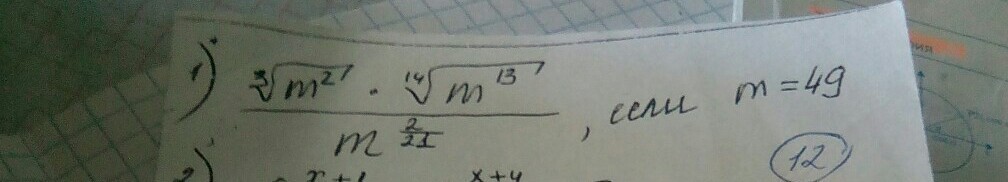 1) \frac{\sqrt[3]{m^2} \cdot \sqrt[14]{m^{13}}}{m^{\frac{2}{21}}}, если m = 49
12
2) x+1 x+4